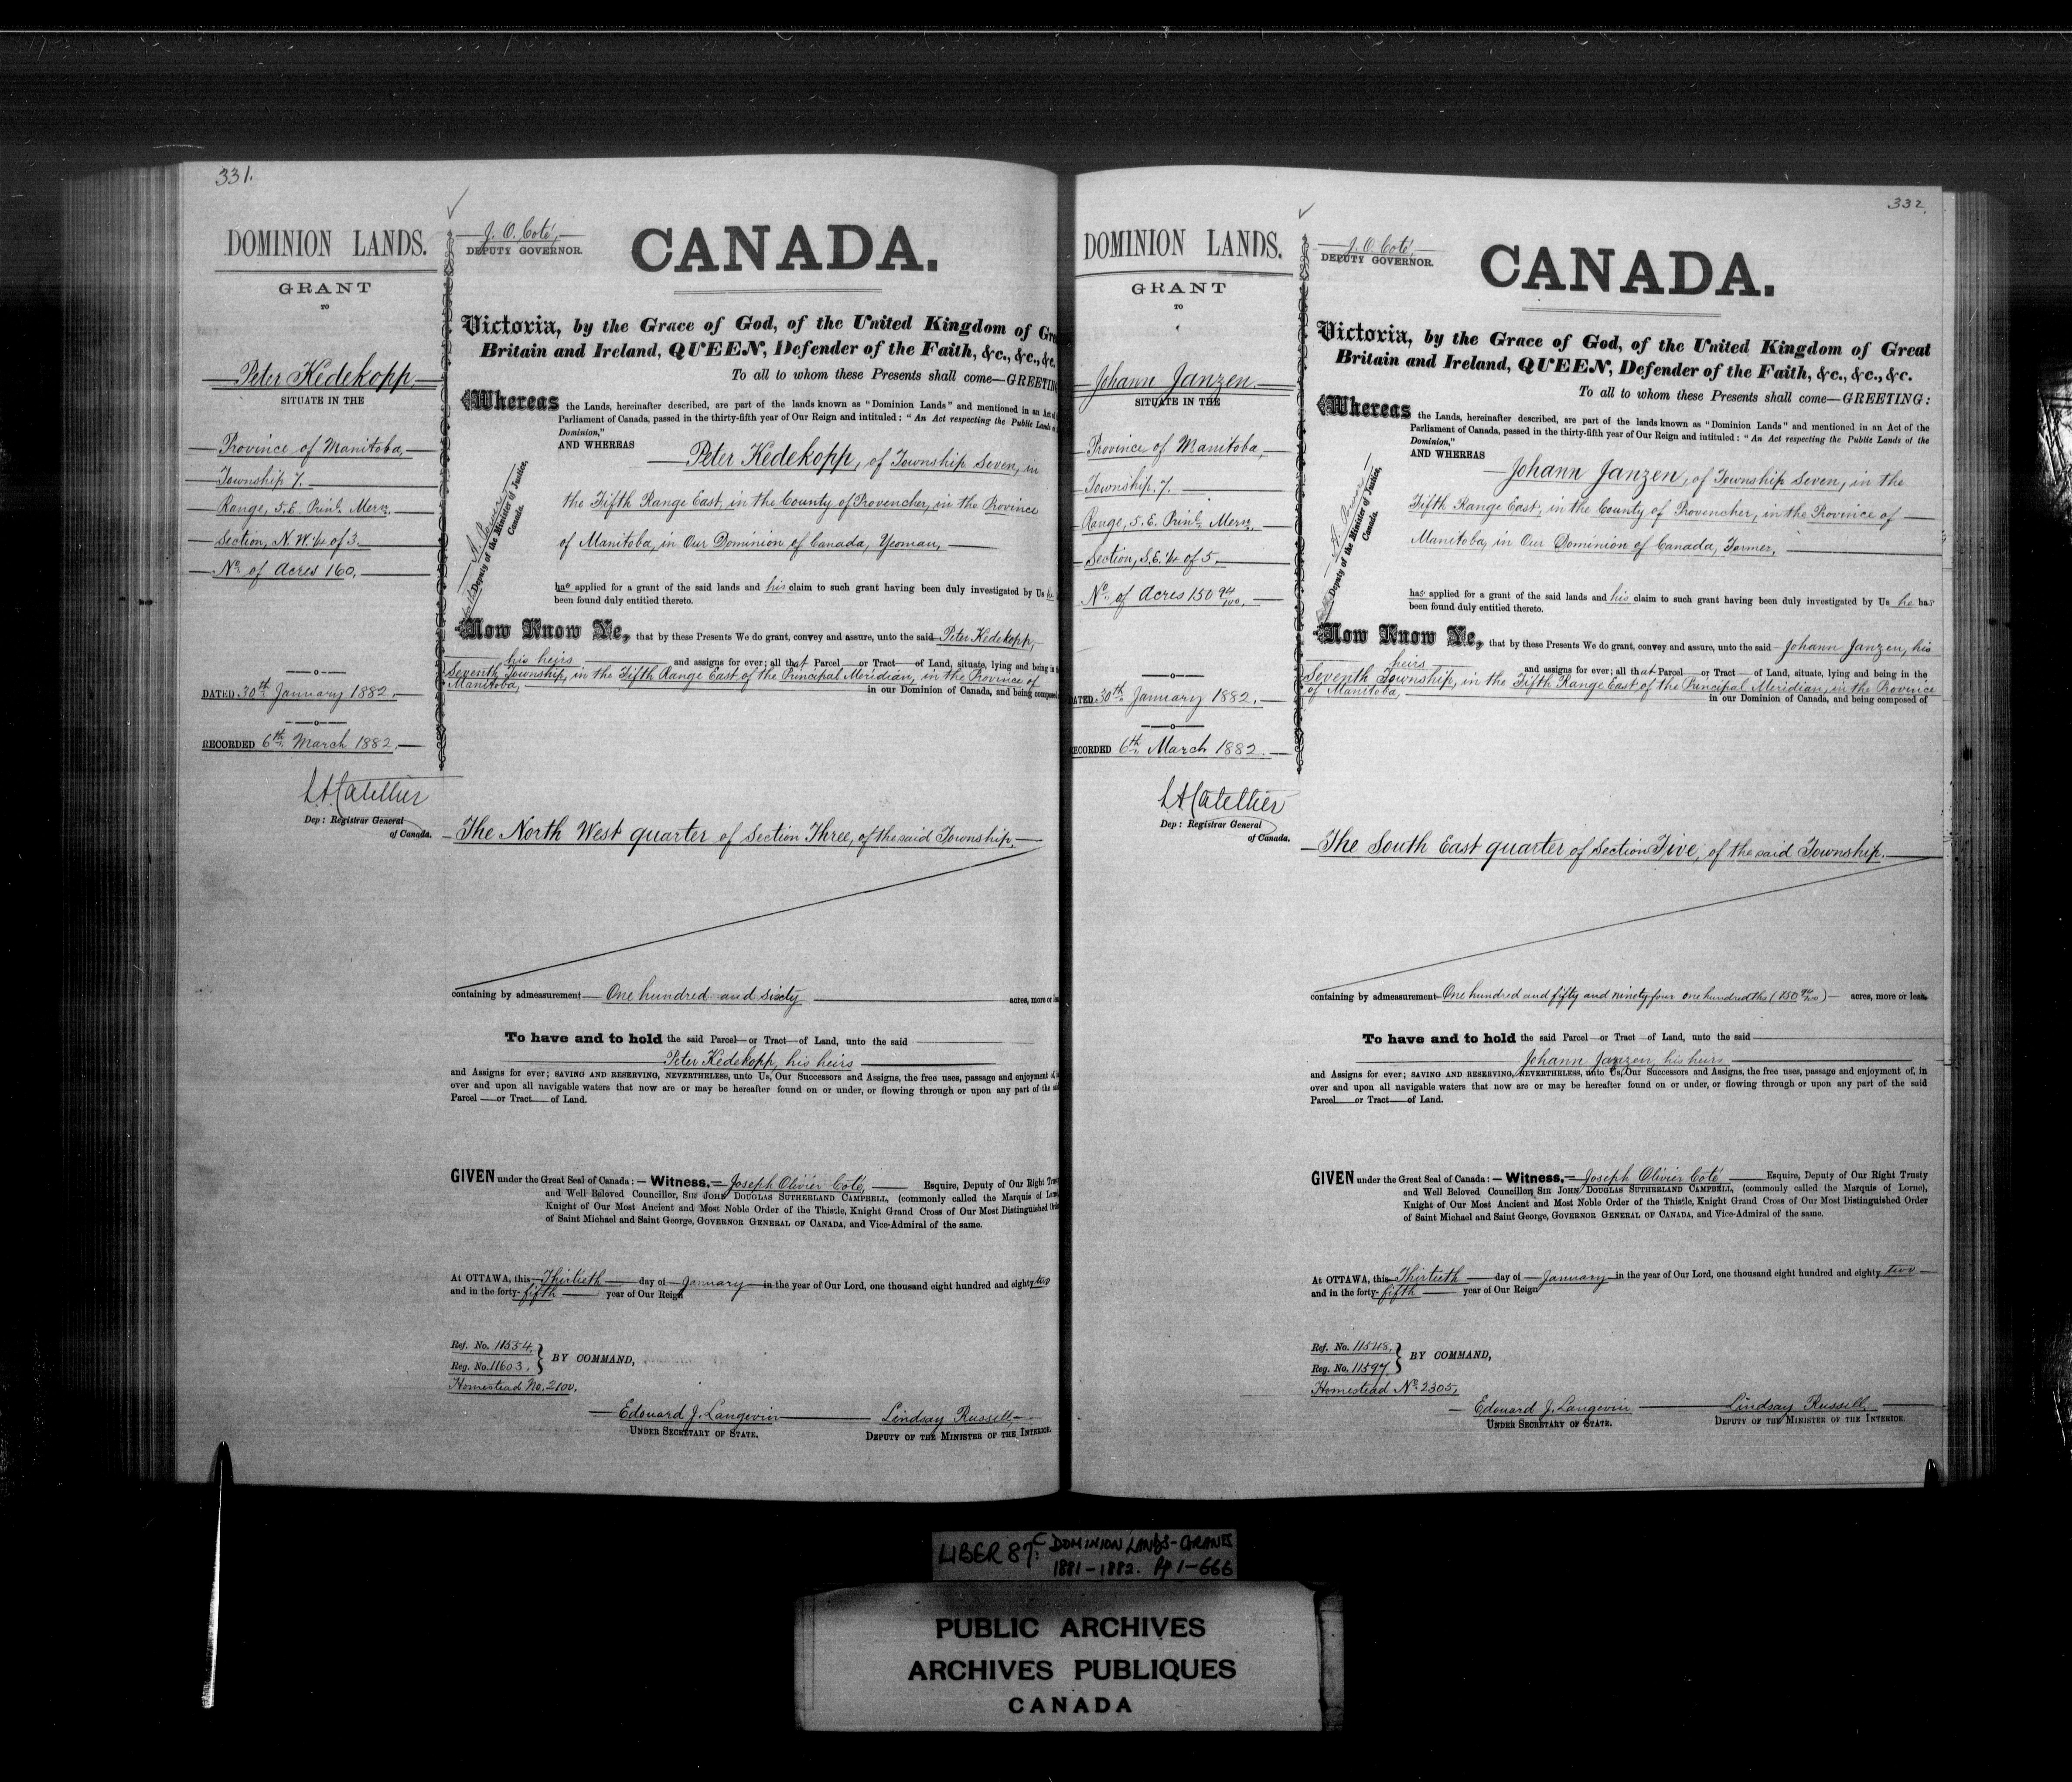 331.
DOMINION LANDS.
GRANT
TO
Peter Kedekopp
SITUATE IN THE
Province of Manitoba,
Township 7.
Range, 5. E. Prinl. Mern.
Section, N. W. 1/4 of 3.
No. of Acres 160.
DATED 30th January 1882.
RECORDED 6th March 1882.
Dep: Registrar General
of Canada.
J. O. Coté,
DEPUTY GOVERNOR.
CANADA.
Victoria, by the Grace of God, of the United Kingdom of Gre
Britain and Ireland, QUEEN, Defender of the Faith, &c., &c., &c.
To all to whom these Presents shall come—GREETING
Whereas the Lands, hereinafter described, are part of the lands known as "Dominion Lands" and mentioned in an Act of
Parliament of Canada, passed in the thirty-fifth year of Our Reign and intituled: "An Act respecting the Public Lands of
Dominion,"
AND WHEREAS
Peter Kedekopp, of Township Seven, in
the Fifth Range East, in the County of Provencher, in the Province
of Manitoba, in Our Dominion of Canada, Yeoman,
Deputy of the Minister of Justice,
Canada.
has applied for a grant of the said lands and his claim to such grant having been duly investigated by Us he
been found duly entitled thereto.
Now Know Ye, that by these Presents We do grant, convey and assure, unto the said Peter Kedekopp,
his heirs and assigns for ever; all that Parcel or Tract of Land, situate, lying and being in
Seventh Township, in the Fifth Range East of the Principal Meridian, in the Province of
Manitoba, in our Dominion of Canada, and being composed
The North West quarter of Section Three, of the said Township.
containing by admeasurement One hundred and sixty acres, more or les
To have and to hold the said Parcel or Tract of Land, unto the said
Peter Kedekopp, his heirs
and Assigns for ever; SAVING AND RESERVING, NEVERTHELESS, unto Us, Our Successors and Assigns, the free uses, passage and enjoyment of,
over and upon all navigable waters that now are or may be hereafter found on or under, or flowing through or upon any part of the
Parcel or Tract of Land.
GIVEN under the Great Seal of Canada:—Witness, Joseph Olivier Coté, Esquire, Deputy of Our Right Trusty
and Well Beloved Councillor, SIR JOHN DOUGLAS SUTHERLAND CAMPBELL, (commonly called the Marquis of Lorne
Knight of Our Most Ancient and Most Noble Order of the Thistle, Knight Grand Cross of Our Most Distinguished Order
of Saint Michael and Saint George, GOVERNOR GENERAL OF CANADA, and Vice-Admiral of the same.
At OTTAWA, this Thirtieth day of January in the year of Our Lord, one thousand eight hundred and eighty two
and in the forty-fifth year of Our Reign
Ref. No. 11554.
Reg. No. 11603.
BY COMMAND,
Homestead No. 2100.
Edouard J. Langevin
UNDER SECRETARY OF STATE.
Lindsay Russell,
DEPUTY OF THE MINISTER OF THE INTERIOR.
332.
DOMINION LANDS.
GRANT
TO
Johann Janzen
SITUATE IN THE
Province of Manitoba,
Township. 7.
Range, 5. E. Prinl. Mern.
Section, S. E. 1/4 of 5.
No. of Acres 150 94/100.
DATED 30th January 1882.
RECORDED 6th March 1882.
Dep: Registrar General
of Canada.
J. O. Coté,
DEPUTY GOVERNOR.
CANADA.
Victoria, by the Grace of God, of the United Kingdom of Great
Britain and Ireland, QUEEN, Defender of the Faith, &c., &c., &c.
To all to whom these Presents shall come—GREETING:
Whereas the Lands, hereinafter described, are part of the lands known as "Dominion Lands" and mentioned in an Act of the
Parliament of Canada, passed in the thirty-fifth year of Our Reign and intituled: "An Act respecting the Public Lands of the
Dominion,"
AND WHEREAS
Johann Janzen, of Township Seven, in the
Fifth Range East, in the County of Provencher, in the Province of
Manitoba, in Our Dominion of Canada, Farmer,
Deputy of the Minister of Justice,
Canada.
has applied for a grant of the said lands and his claim to such grant having been duly investigated by Us he has
been found duly entitled thereto.
Now Know Ye, that by these Presents We do grant, convey and assure, unto the said Johann Janzen, his
heirs and assigns for ever; all that Parcel or Tract of Land, situate, lying and being in the
Seventh Township, in the Fifth Range East of the Principal Meridian, in the Province
of Manitoba, in our Dominion of Canada, and being composed of
The South East quarter of Section Five, of the said Township.
containing by admeasurement One hundred and fifty and ninety four one hundredths (150 94/100) acres, more or less.
To have and to hold the said Parcel or Tract of Land, unto the said
Johann Janzen, his heirs
and Assigns for ever; SAVING AND RESERVING, NEVERTHELESS, unto Us, Our Successors and Assigns, the free uses, passage and enjoyment of, in
over and upon all navigable waters that now are or may be hereafter found on or under, or flowing through or upon any part of the said
Parcel or Tract of Land.
GIVEN under the Great Seal of Canada:—Witness, Joseph Olivier Coté Esquire, Deputy of Our Right Trusty
and Well Beloved Councillor, SIR JOHN DOUGLAS SUTHERLAND CAMPBELL, (commonly called the Marquis of Lorne),
Knight of Our Most Ancient and Most Noble Order of the Thistle, Knight Grand Cross of Our Most Distinguished Order
of Saint Michael and Saint George, GOVERNOR GENERAL OF CANADA, and Vice-Admiral of the same.
At OTTAWA, this Thirtieth day of January in the year of Our Lord, one thousand eight hundred and eighty two
and in the forty-fifth year of Our Reign
Ref. No. 11548.
Reg. No. 11597
BY COMMAND,
Homestead No. 2305.
Edouard J. Langevin
UNDER SECRETARY OF STATE.
Lindsay Russell,
DEPUTY OF THE MINISTER OF THE INTERIOR.
LIBER 87C: DOMINION LANDS-GRANTS
1881-1882. Pp 1-666
PUBLIC ARCHIVES
ARCHIVES PUBLIQUES
CANADA